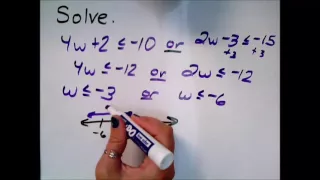 Solve.
4w+2 ≤ -10 or 2w-3 ≤ -15
+3 +3
4w ≤ -12 or 2w ≤ -12
w ≤ -3 or w ≤ -6
-6